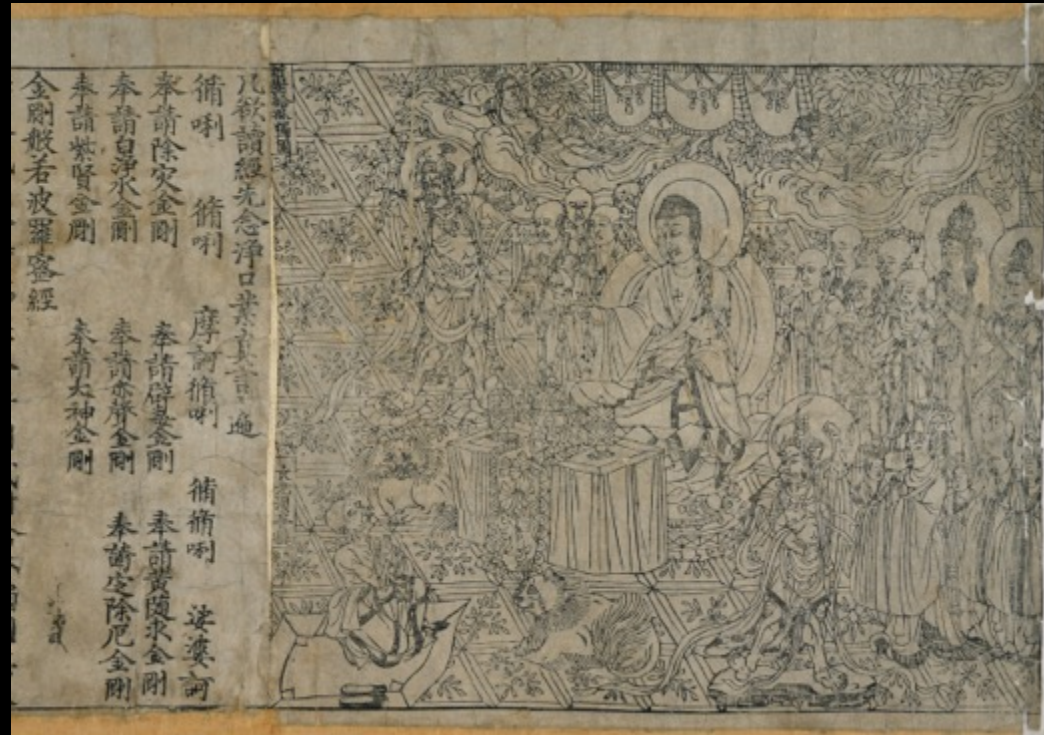 凡欲讀經先念淨口業真言遍
脩唎 脩唎 摩訶脩唎 脩脩唎 娑婆訶
奉請除灾金剛 奉請辟毒金剛 奉請黃隨求金剛
奉請白淨水金剛 奉請赤聲金剛 奉請定除厄金剛
奉請紫賢金剛 奉請大神金剛
金剛般若波羅蜜經